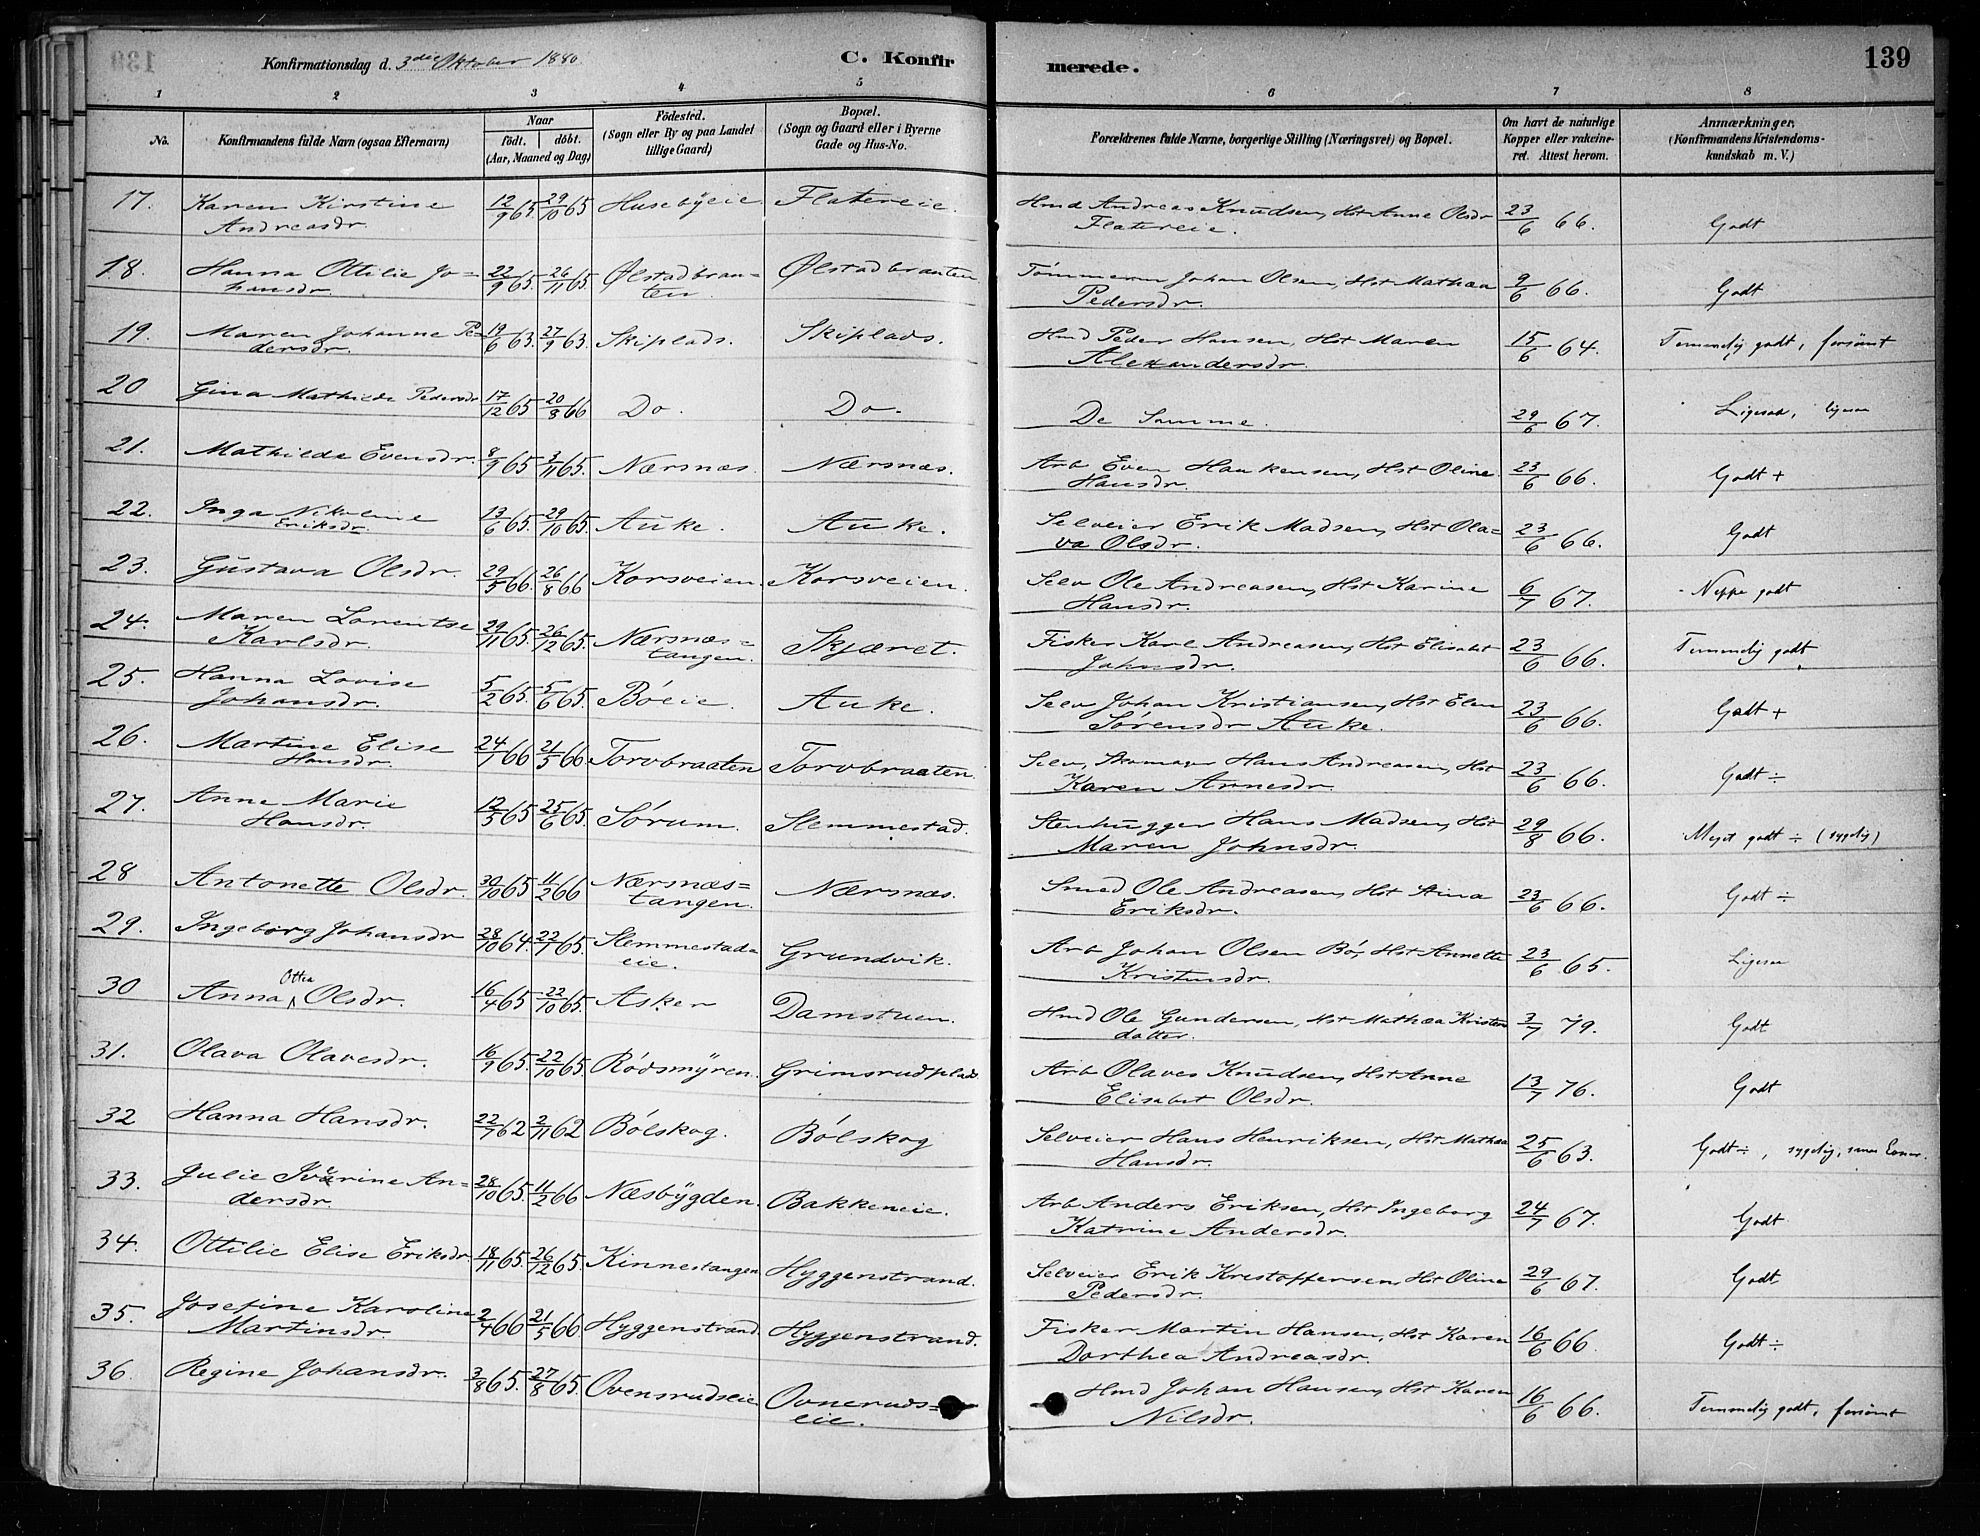 Konfirmationsdag d. 3die Oktober 1880
C. Konfirmerede.
139
1 2 3 4 5 6 7 8
No.
Konfirmandens fulde Navn (ogsaa Efternavn)
Naar
født. døbt.
(Aar, Maaned og Dag)
Fødested.
(Sogn eller By og paa Landet
tillige Gaard)
Bopæl.
(Sogn og Gaard eller i Byerne
Gade og Hus-No.
Forældrenes fulde Navne, borgerlige Stilling (Næringsvei) og Bopæl.
Om havt de naturlige
Kopper eller vakcine-
ret. Attest herom.
Anmærkninger.
(Konfirmandens Kristendoms-
kundskab m. V.)
17. Karen Kirstine 12/9 65. 29/10 65 Husebyeie Flatereie. Hmd Andreas Knudsen, Hst Anne Olsdr 23/6 66. Godt
Andreasdr. Flatereie.
18. Hanna Ottilie Jo= 22/9 65. 26/11 65. Ølstadbraa= Ølstadbraaten Tømmerm Johan Olsen, Hst Mathea 9/6 66. Godt
hansdr. ten. Pedersdr.
19. Maren Johanne Pe= 19/6 63. 27/9 63. Skiplads. Skiplads. Hmd Peder Hansen, Hst Maren 15/6 64. Temmelig godt, forsømt
dersdr. Alexandersdr.
20 Gina Mathilde Pedersdr 17/12 65 20/8 66 Do. Do. De Samme. 29/6 67. Ligesaa, ligesaa
21. Mathilde Evensdr. 8/9 65 3/11 65. Nærsnæs. Nærsnæs. Arb Even Haakensen, Hst Oline 23/6 66. Godt +
Hansdr.
22. Inga Nikoline 13/6 65. 29/10 65. Auke. Auke. Selveier Erik Madsen, Hst Ola= 23/6 66. Godt
Eriksdr. va Olsdr.
23. Gustava Olsdr. 29/5 66. 26/8 66 Korsveien Korsveien. Selv Ole Andreasen, Hst Karine 6/7 67. Neppe godt
Hansdr.
24. Maren Lorentse 29/11 65. 26/12 65. Nærsnæs= Skjæret. Fisker Karl Andreasen, Hst Elisabet 23/6 66. Temmelig godt
Karlsdr. tangen. Johnsdr.
25. Hanna Lovise 5/2 65. 5/6 65. Bøeie. Auke. Selv Johan Kristiansen, Hst Elen 23/6 66. Godt +
Johansdr. Sørensdr Auke.
26. Martine Elise 24/1 66 21/5 66 Torvbraaten Torvbraaten. Selv, Skomager Hans Andreasen, Hst 23/6 66. Godt ÷
Hansdr. Karen Annesdr.
27. Anne Marie 12/5 65 25/6 65. Sørum. Slemmestad. Stenhugger Hans Madsen, Hst 29/8 66. Meget godt ÷ (sygelig)
Hansdr. Maren Johnsdr.
28 Antonette Olsdr. 30/10 65 11/2 66 Nærsnæs= Nærsnæs. Smed Ole Andreasen, Hst Stina 23/6 66. Godt ÷
tangen. Eriksdr.
29. Ingeborg Johansdr 28/10 64. 22/1 65. Slemmestads Grundvik. Arb Johan Olsen Bø, Hst Annette 23/6 65. Ligesaa
eie. Kristensdr.
30 Anna Ottea Olsdr. 16/4 65 22/10 65. Asker Damstuen. Hmd Ole Gundersen, Hst Mathea Kristens 3/7 79. Godt
datter.
31. Olava Olavesdr. 16/9 65. 22/10 65. Rødsmyren. Grimsrudplads. Arb Olaves Knudsen, Hst Anne 13/7 76. Godt
Elisabet Olsdr.
32 Hanna Hansdr. 22/9 62 2/11 62 Bølskog. Bølskog Selveier Hans Henriksen, Hst Mathea 25/6 63. Godt ÷, sygelig, smaa Evner.
Hansdr.
33. Julie Iverine An= 28/10 65. 11/2 66 Næsbygden. Bakkeneie. Arb Anders Eriksen, Hst Ingeborg 24/7 67. Godt
dersdr. Katrine Andersdr.
34. Ottilie Elise Eriksdr. 18/11 65. 26/12 65. Kinnestangen Hyggenstrand. Selveier Erik Kristoffersen, Hst Oline 29/6 67. Godt
Pedersdr.
35. Josefine Karoline 2/4 66 21/5 66 Hyggenstrand. Hyggenstrand. Fisker Martin Hansen, Hst Karen 16/6 66. Godt ÷
Martinsdr. Dorthea Andreasdr.
36. Regine Johansdr. 3/8 65. 27/8 65. Ovensrudseie Ovneruds= Hmd Johan Hansen, Hst Karen 16/6 66. Temmelig godt, forsømt
eie. Nilsdr.